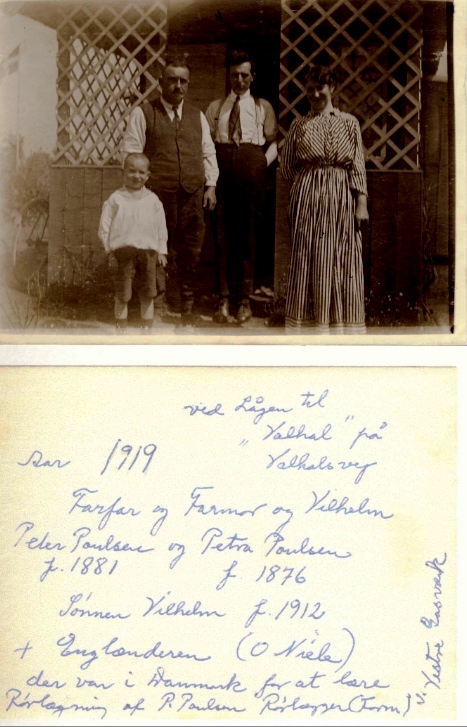 ved Lågen til
"Valhal" på
Aar 1919 Valhalsvej
Farfar og Farmor og Vilhelm
Peter Poulsen og Petra Poulsen
f. 1881 f. 1876
Sønnen Vilhelm f. 1912
+ Englænderen (O Niele)
der var i Danmark for at lære
Rørlægning af P. Poulsen Rørlægger (Form)
v. Vestre Gasværk